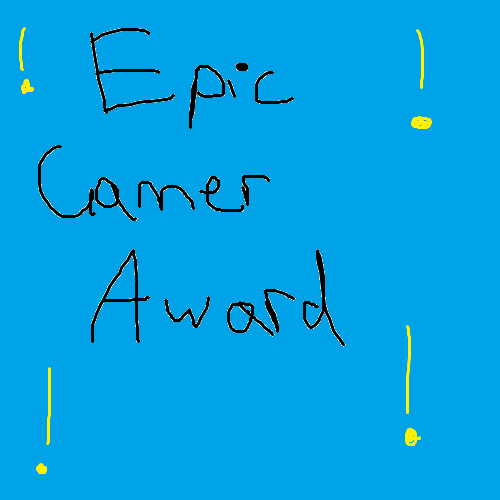 ! Epic !
Gamer
Award
! !